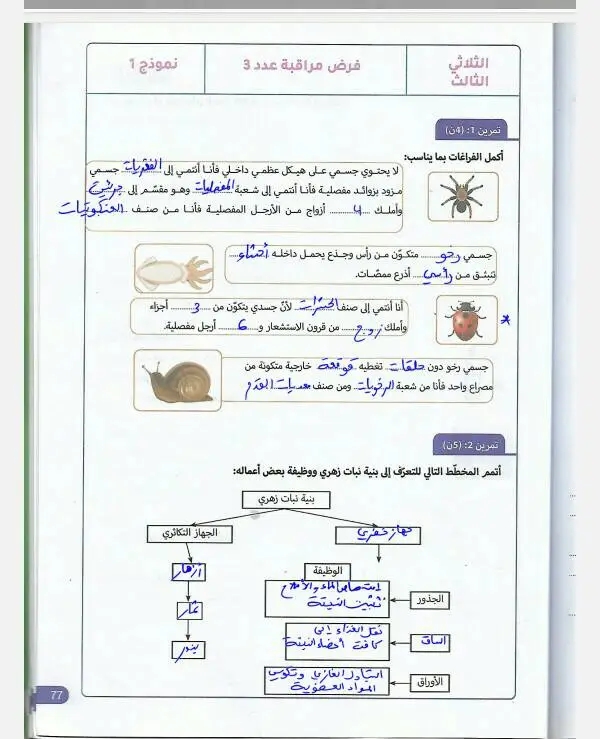 الثلاثي الثالث
فرض مراقبة عدد 3
نموذج 1
تمرين 1: (4ن)
أكمل الفراغات بما يناسب:
لا يحتوي جسمي على هيكل عظمي داخلي فأنا أنتمي إلى الفقريات جسمي
مزود بزوائد مفصلية فأنا أنتمي إلى شعبة المفصليات وهو مقسّم إلى جزئين
وأملك 4 أزواج من الأرجل المفصلية فأنا من صنف العنكبوتيات
جسمي رخو متكوّن من رأس وجذع يحمل داخله أحشاء
تنبثق من رأسي أذرع ممصّات.
أنا أنتمي إلى صنف الحشرات لأنّ جسدي يتكوّن من 3 أجزاء
وأملك زوج من قرون الاستشعار و 6 أرجل مفصلية.
جسمي رخو دون حلقات تغطيه قوقعة خارجية متكونة من
مصراع واحد فأنا من شعبة الرخويات ومن صنف معديات القدم
تمرين 2: (5ن)
أتمم المخطّط التالي للتعرّف إلى بنية نبات زهري ووظيفة بعض أعماله:
بنية نبات زهري
جهاز خضري
الجهاز التكاثري
الوظيفة
الجذور
امتصاص الماء والأملاح
تثبيت النبتة
الساق
نقل الغذاء إلى
كافة أعضاء النبتة
الأوراق
التبادل الغازي وتكوين
المواد العضوية
أزهار
ثمار
بذور
77